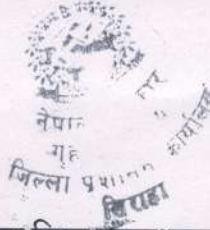 नेपाल
गृह
जिल्ला प्रशासन
कार्यालय
सिराहा